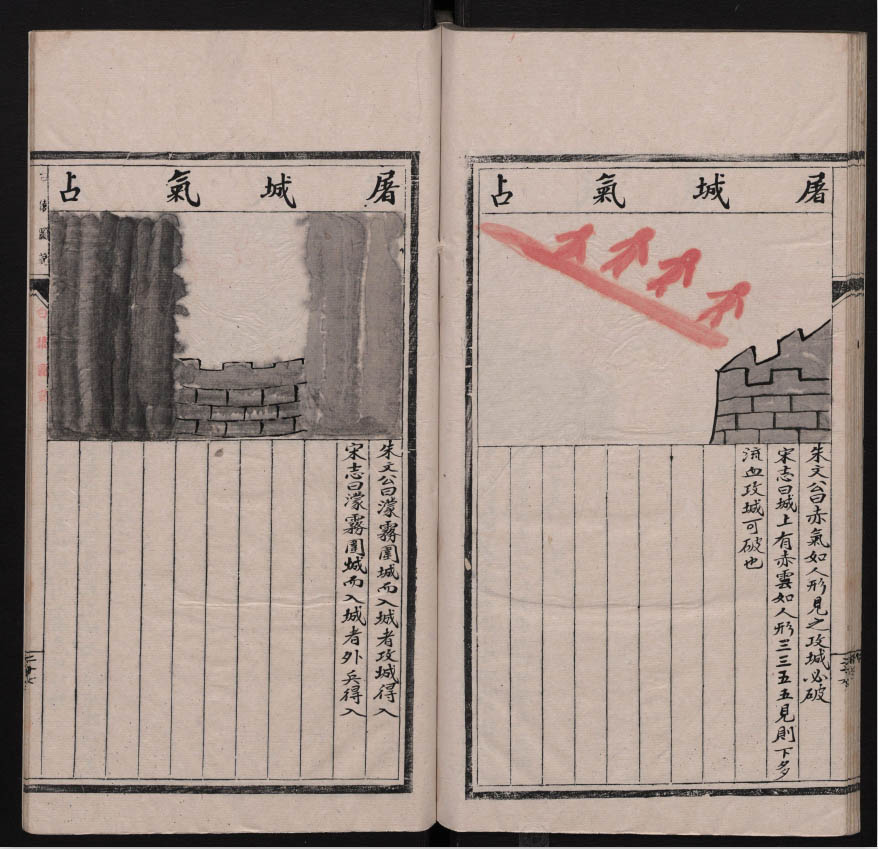 屠城氣占
朱文公曰赤氣如人形見之攻城必破
宋志曰城上有赤雲如人形三三五五見則下多
流血攻城可破也
屠城氣占
朱文公曰濛霧圍城而入城者攻城得入
宋志曰濛霧圍城而入城者外兵得入